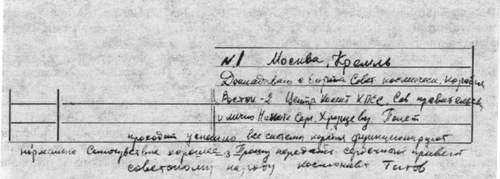 N.1 Москва, Кремль
Докладываю с борта Совет. космическ. корабля
Восток-2 Центр. Комит КПСС, Сов правительств
и лично Никите Серг. Хрущеву Полет
проходит успешно все системы корабля функционируют
нормально Самочувствие хорошее Прошу передать сердечный привет
советскому народу космонавт Титов